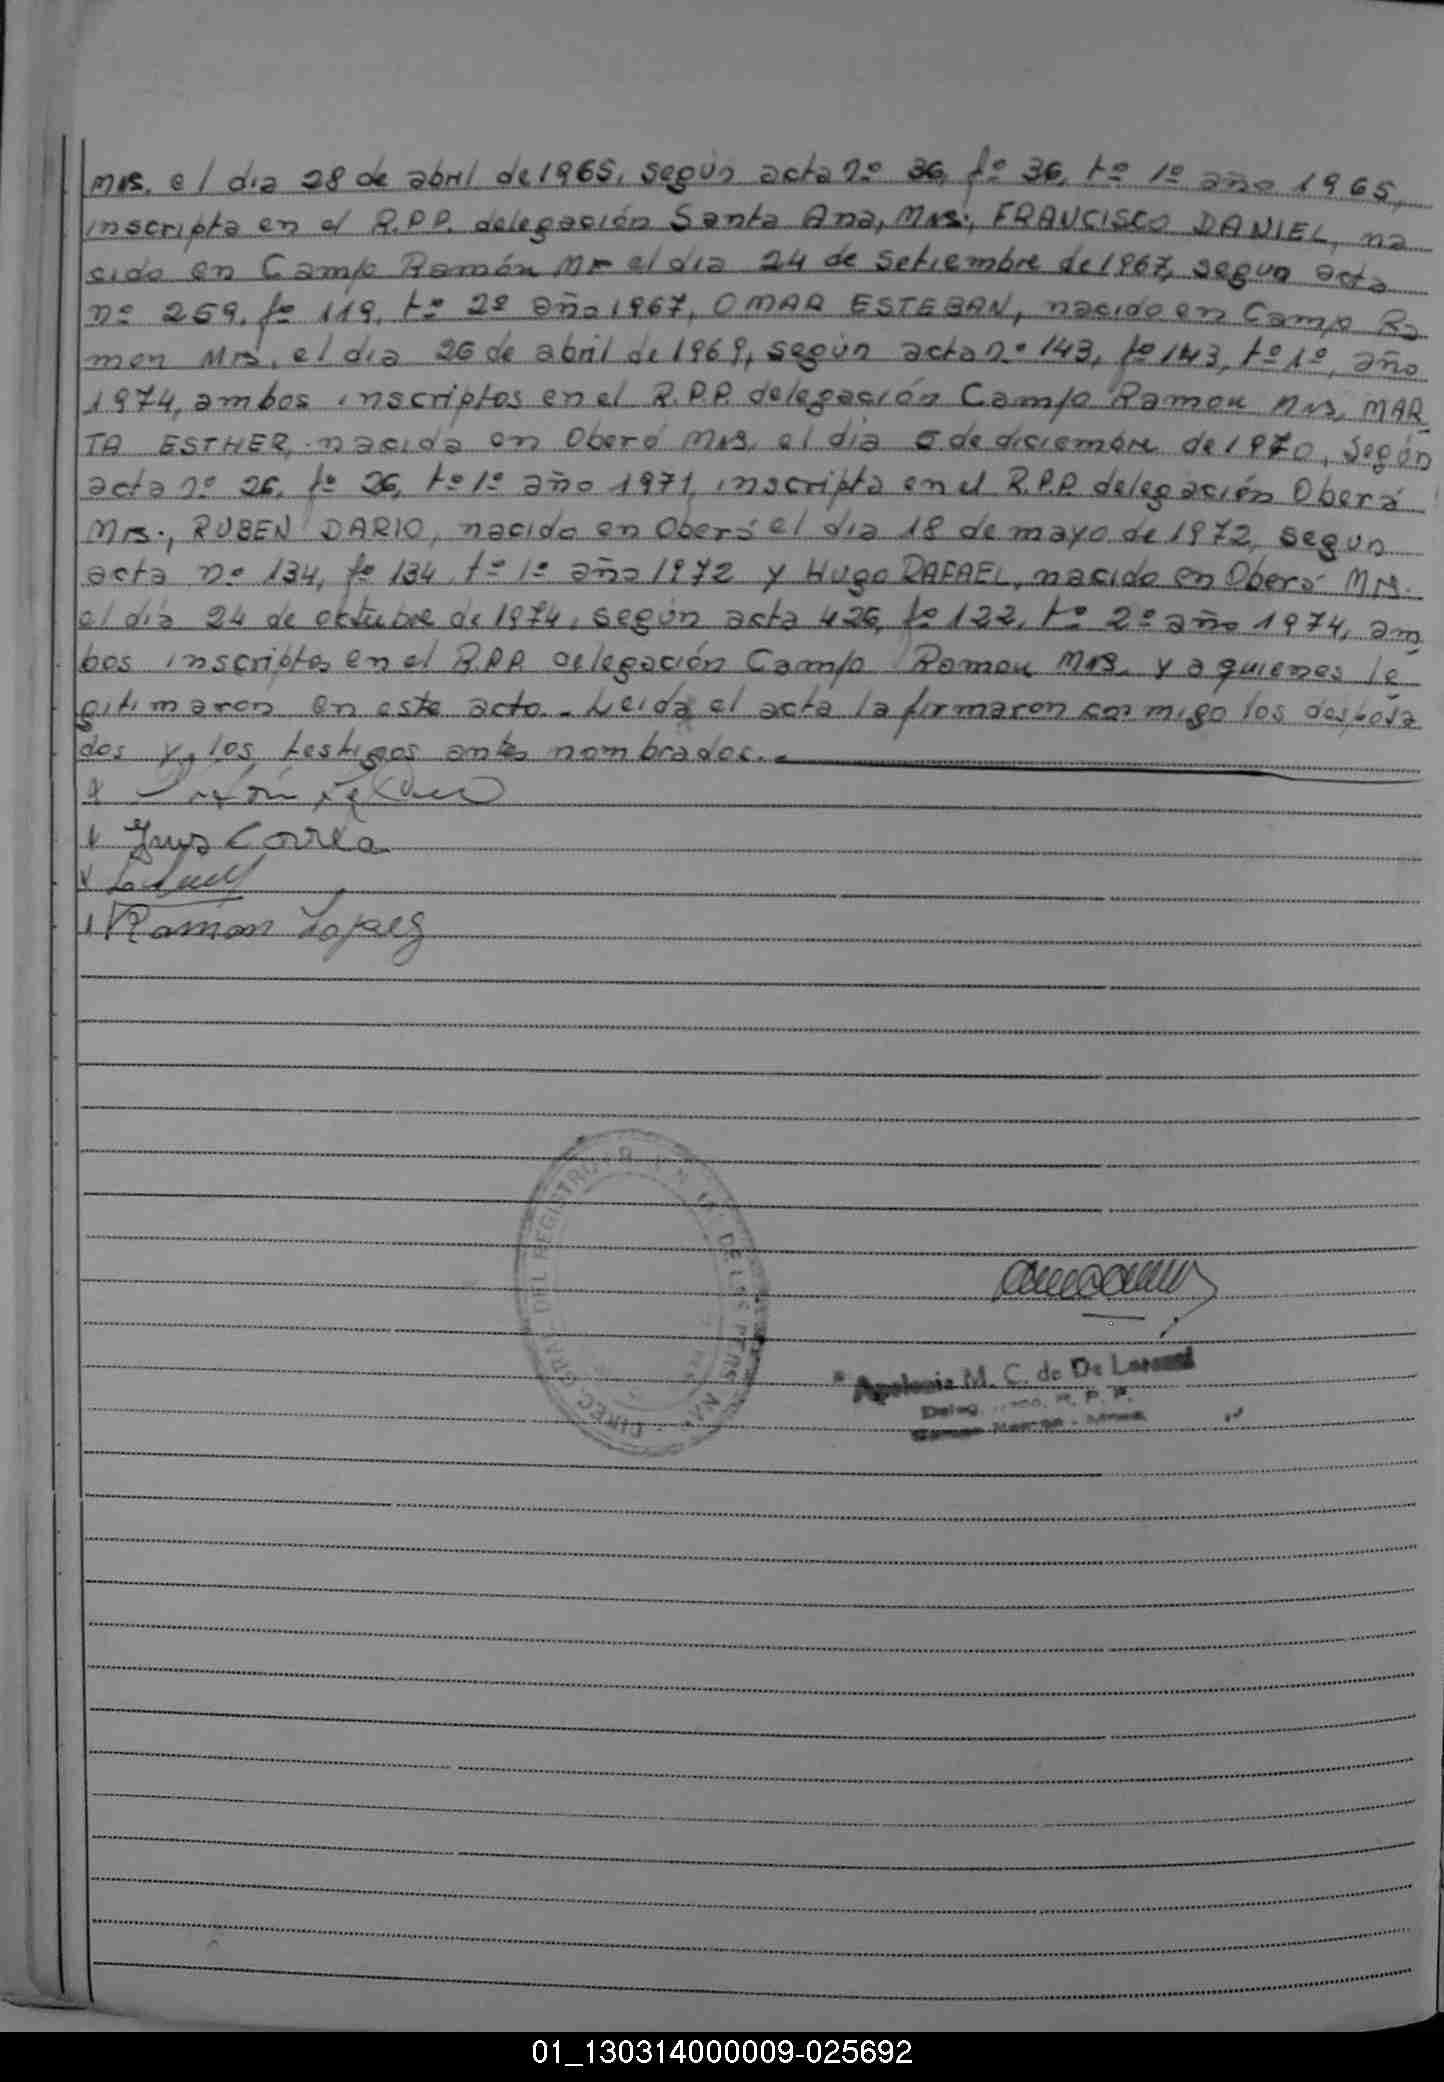 Mns. el dia 28 de abril de 1965, según acta nº 36, fº 36, tº 1º año 1965,
inscripta en el R.P.P. delegación Santa Ana, Mns; FRANCISCO DANIEL, na
cido en Campo Ramón Mns el dia 24 de setiembre de 1967, segun acta
nº 269, fº 119, tº 2º año 1967, OMAR ESTEBAN, nacido en Campo Ra
mon Mns, el dia 26 de abril de 1969, según acta nº 143, fº 143, tº 1º, año
1974, ambos inscriptos en el R.P.P. delegación Campo Ramon Mns, MAR
TA ESTHER, nacida en Oberá Mns, el dia 5 de diciembre de 1970, según
acta nº 26, fº 26, tº 1º año 1971, inscripta en el R.P.P. delegación Oberá
Mns., RUBEN DARIO, nacido en Oberá el dia 18 de mayo de 1972, segun
acta nº 134, fº 134, tº 1º año 1972 y Hugo RAFAEL, nacido en Oberá Mns.
el día 24 de octubre de 1974, según acta 426, fº 122, tº 2º año 1974, am
bos inscriptos en el R.P.P. delegación Campo Ramon Mns. y a quienes le
gitimaron en este acto. Leida el acta la firmaron conmigo los desposa
dos y los testigos antes nombrados.
Correa
Ramón Lopez
DIREC. GRAL. DEL REGISTRO DE LAS PERSONAS
M. C. de De
R. P. P.
01_130314000009-025692